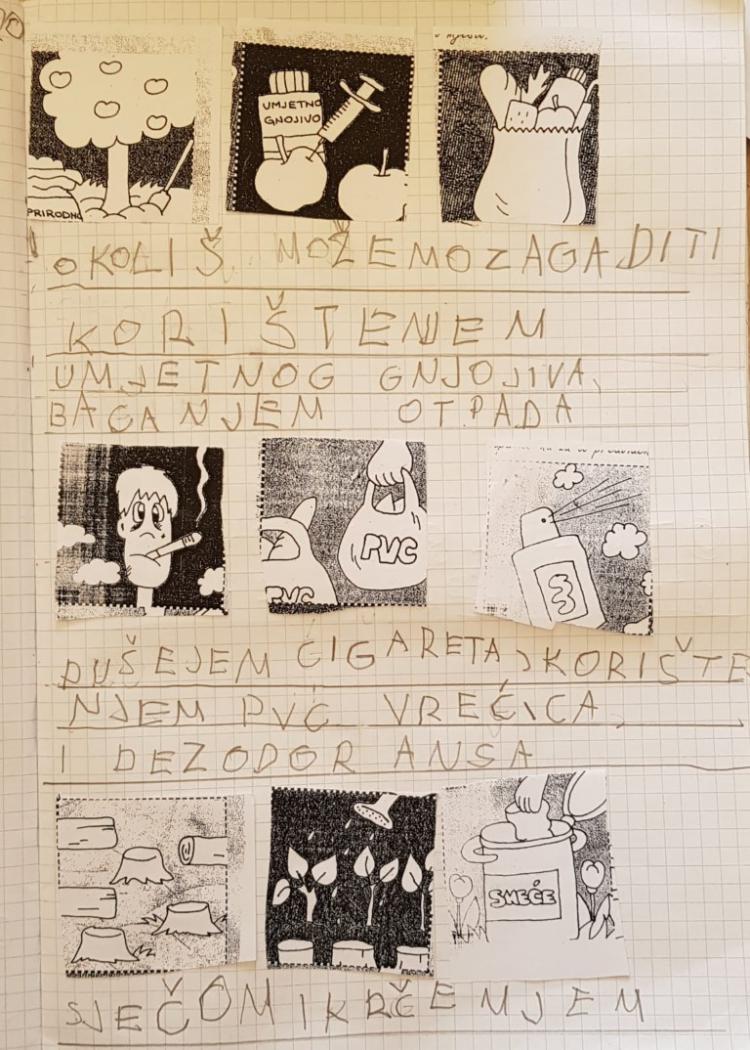 PRIRODNO
UMJETNO
GNOJIVO
OKOLIŠ MOŽEMO ZAGADITI
KORIŠTENJEM
UMJETNOG GNJOJIVA,
BACANJEM OTPADA
PVC
PVC
PUŠEJEM CIGARETA, KORIŠTE
NJEM PVC VREĆICA
I DEZODORANSA
SMEĆE
SJEČOM I KRČEMJEM